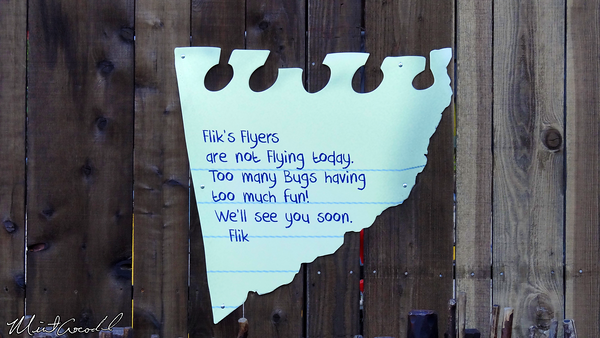 Flik's Flyers
are not Flying today.
Too many Bugs having
too much fun!
We'll see you soon.
Flik